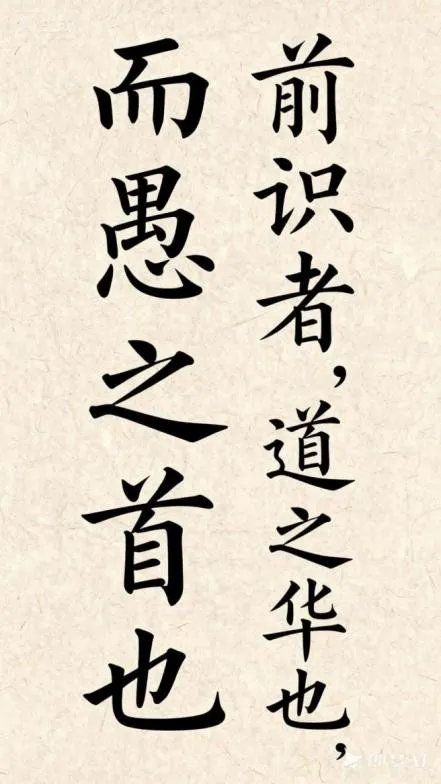 前识者，道之华也，
而愚之首也